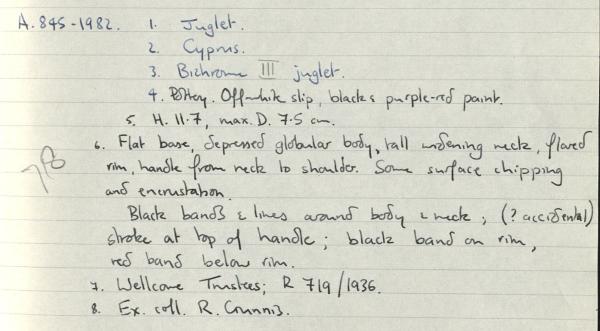 A.845-1982. 1. Juglet.
2. Cyprus.
3. Bichrome III juglet.
4. Pottery. Off-white slip, black & purple-red paint.
5. H. 11.7, max. D. 7.5 cm.
6. Flat base, depressed globular body, tall widening neck, flared
rim, handle from neck to shoulder. Some surface chipping
and encrustation.
Black bands & lines around body & neck; (? accidental)
stroke at top of handle; black band on rim,
red band below rim.
7. Wellcome Trustees; R 719/1936.
8. Ex. coll. R. Gunnis.
78